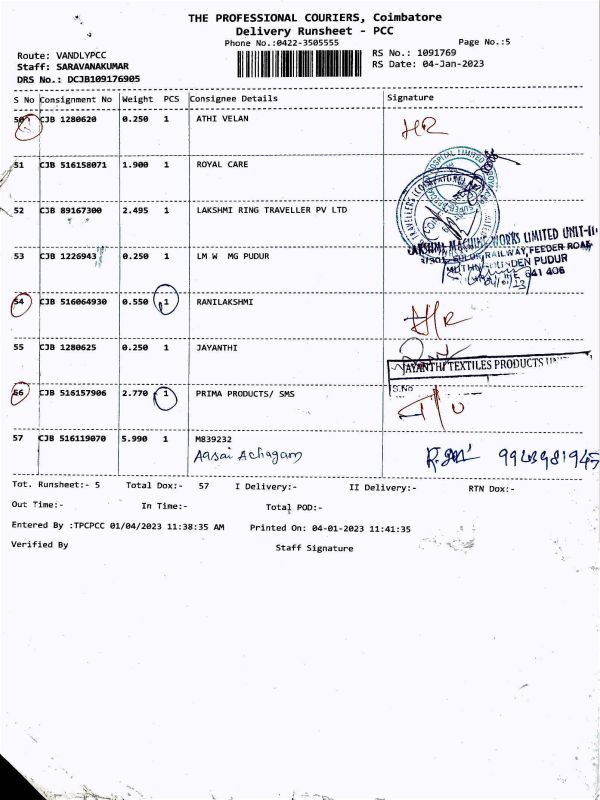 THE PROFESSIONAL COURIERS, Coimbatore
Delivery Runsheet - PCC
Phone No.:0422-3505555
Page No.:5
Route: VANDLYPCC
RS No.: 1091769
Staff: SARAVANAKUMAR
RS Date: 04-Jan-2023
DRS No.: DCJB109176905
S No Consignment No Weight PCS Consignee Details Signature
50 CJB 1280620 0.250 1 ATHI VELAN
51 CJB 516158071 1.900 1 ROYAL CARE
52 CJB 89167300 2.495 1 LAKSHMI RING TRAVELLER PV LTD
LAKSHMI MACHINE WORKS LIMITED UNIT-II
RAILWAY, FEEDER ROAD
53 CJB 1226943 0.250 1 LM W MG PUDUR
641 406
54 CJB 516064930 0.550 1 RANILAKSHMI
55 CJB 1280625 0.250 1 JAYANTHI
JAYANTHI TEXTILES PRODUCTS
S.No
56 CJB 516157906 2.770 1 PRIMA PRODUCTS/ SMS
57 CJB 516119070 5.990 1 M839232
Aasai Achagam
Tot. Runsheet:- 5 Total Dox:- 57 I Delivery:- II Delivery:- RTN Dox:-
Out Time:- In Time:- Total POD:-
Entered By :TPCPCC 01/04/2023 11:38:35 AM Printed On: 04-01-2023 11:41:35
Verified By Staff Signature